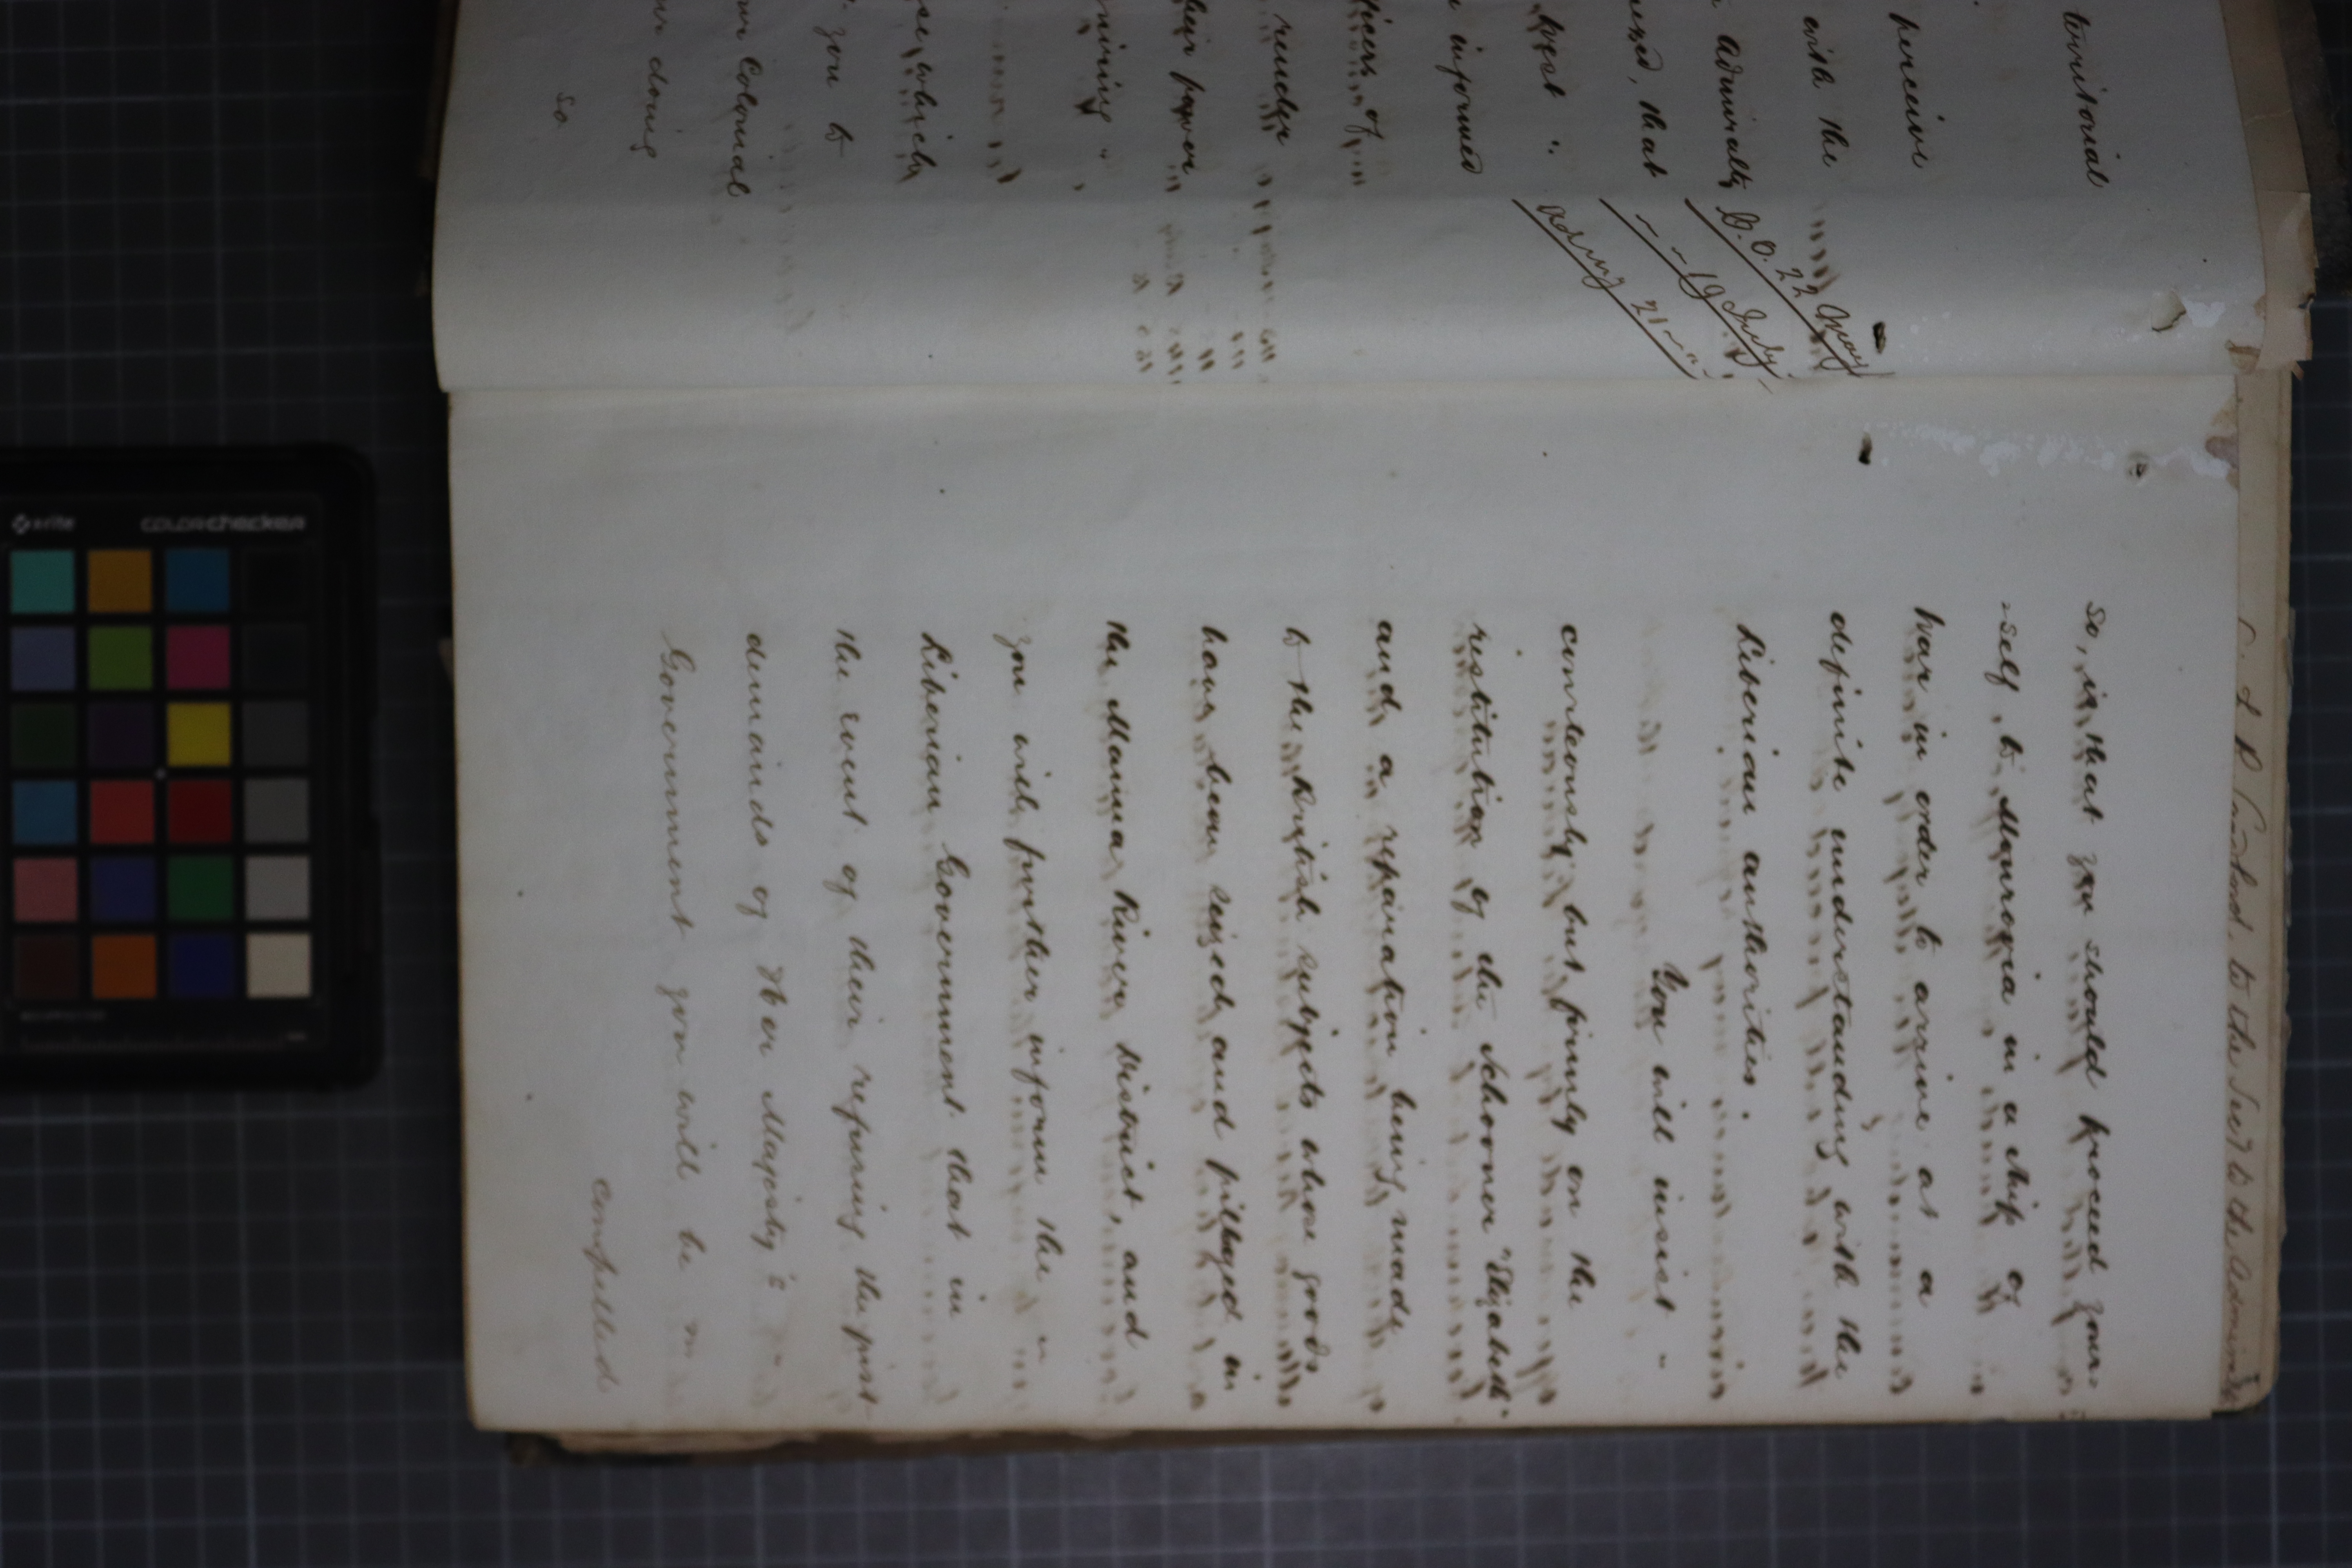 territorial
perceive
with the
Admiralty
that
West
informed
officers of
render
their power
which
you to
Colonial
doing
so
C.O. 22 May
" " 19 July
Admy 21 "
so, is that you should proceed your-
-self, to Monrovia in a ship of
War in order to arrive at a
definite understanding with the
Liberian authorities.
You will insist -
courteously but firmly on the
restitution of the Schooner "Elizabeth"
and a reparation being made
to the British subjects whose goods
have been seized and pillaged in
the Manna River District, and
you will further inform the
Liberian Government that in
the event of their refusing the just
demands of Her Majesty's
Government you will be
compelled
to the Secy to the Admiralty
x-rite
colorchecker